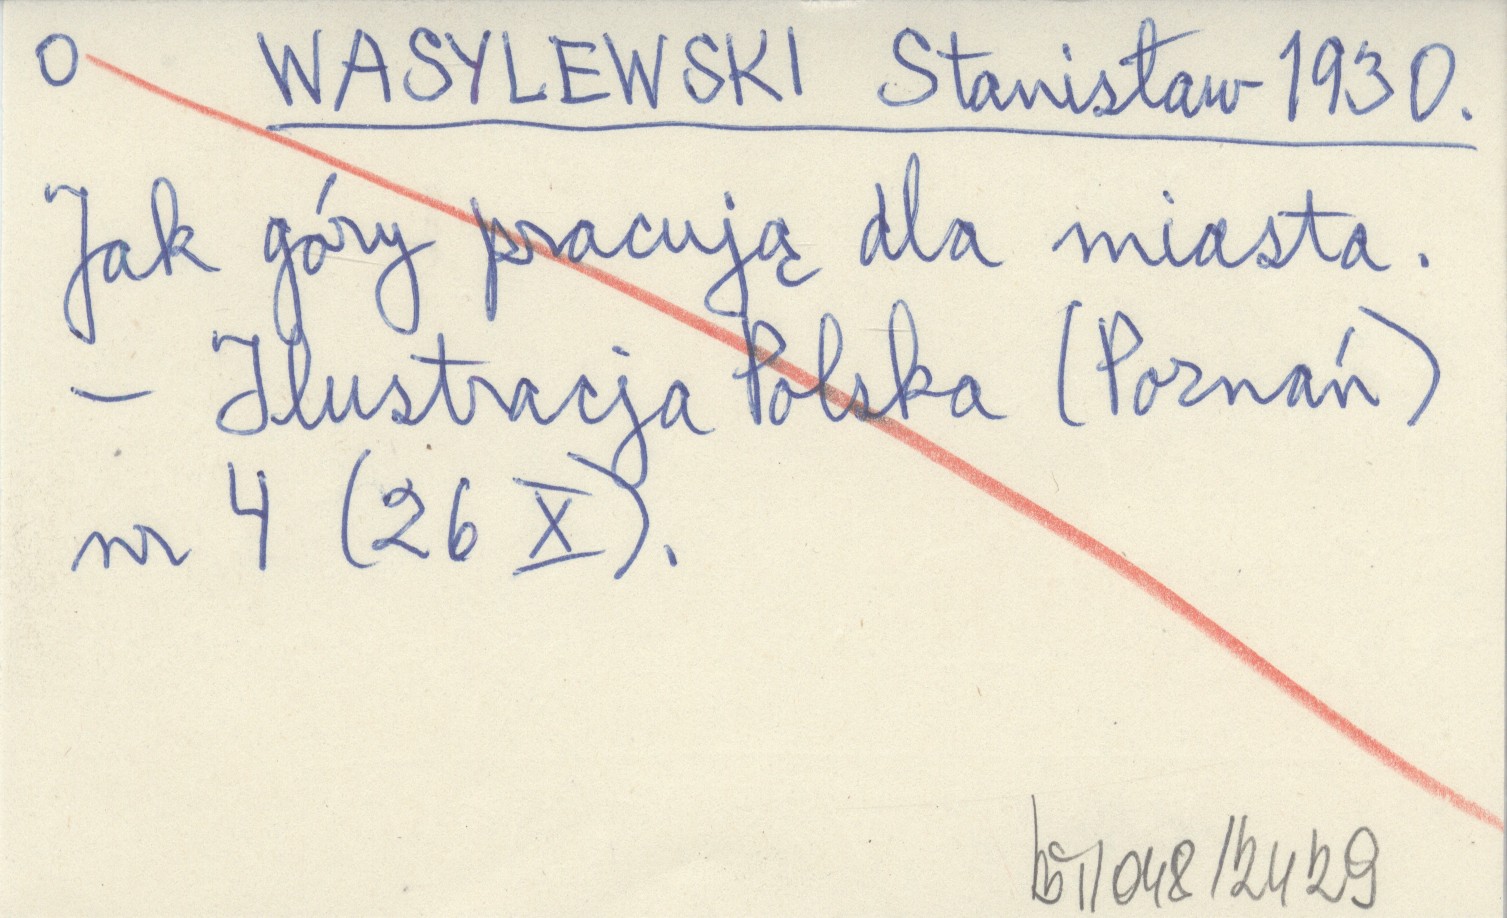 O WASYLEWSKI Stanisław 1930.
Jak góry pracują dla miasta.
– Ilustracja Polska (Poznań)
nr 4 (26 X).
048/2429